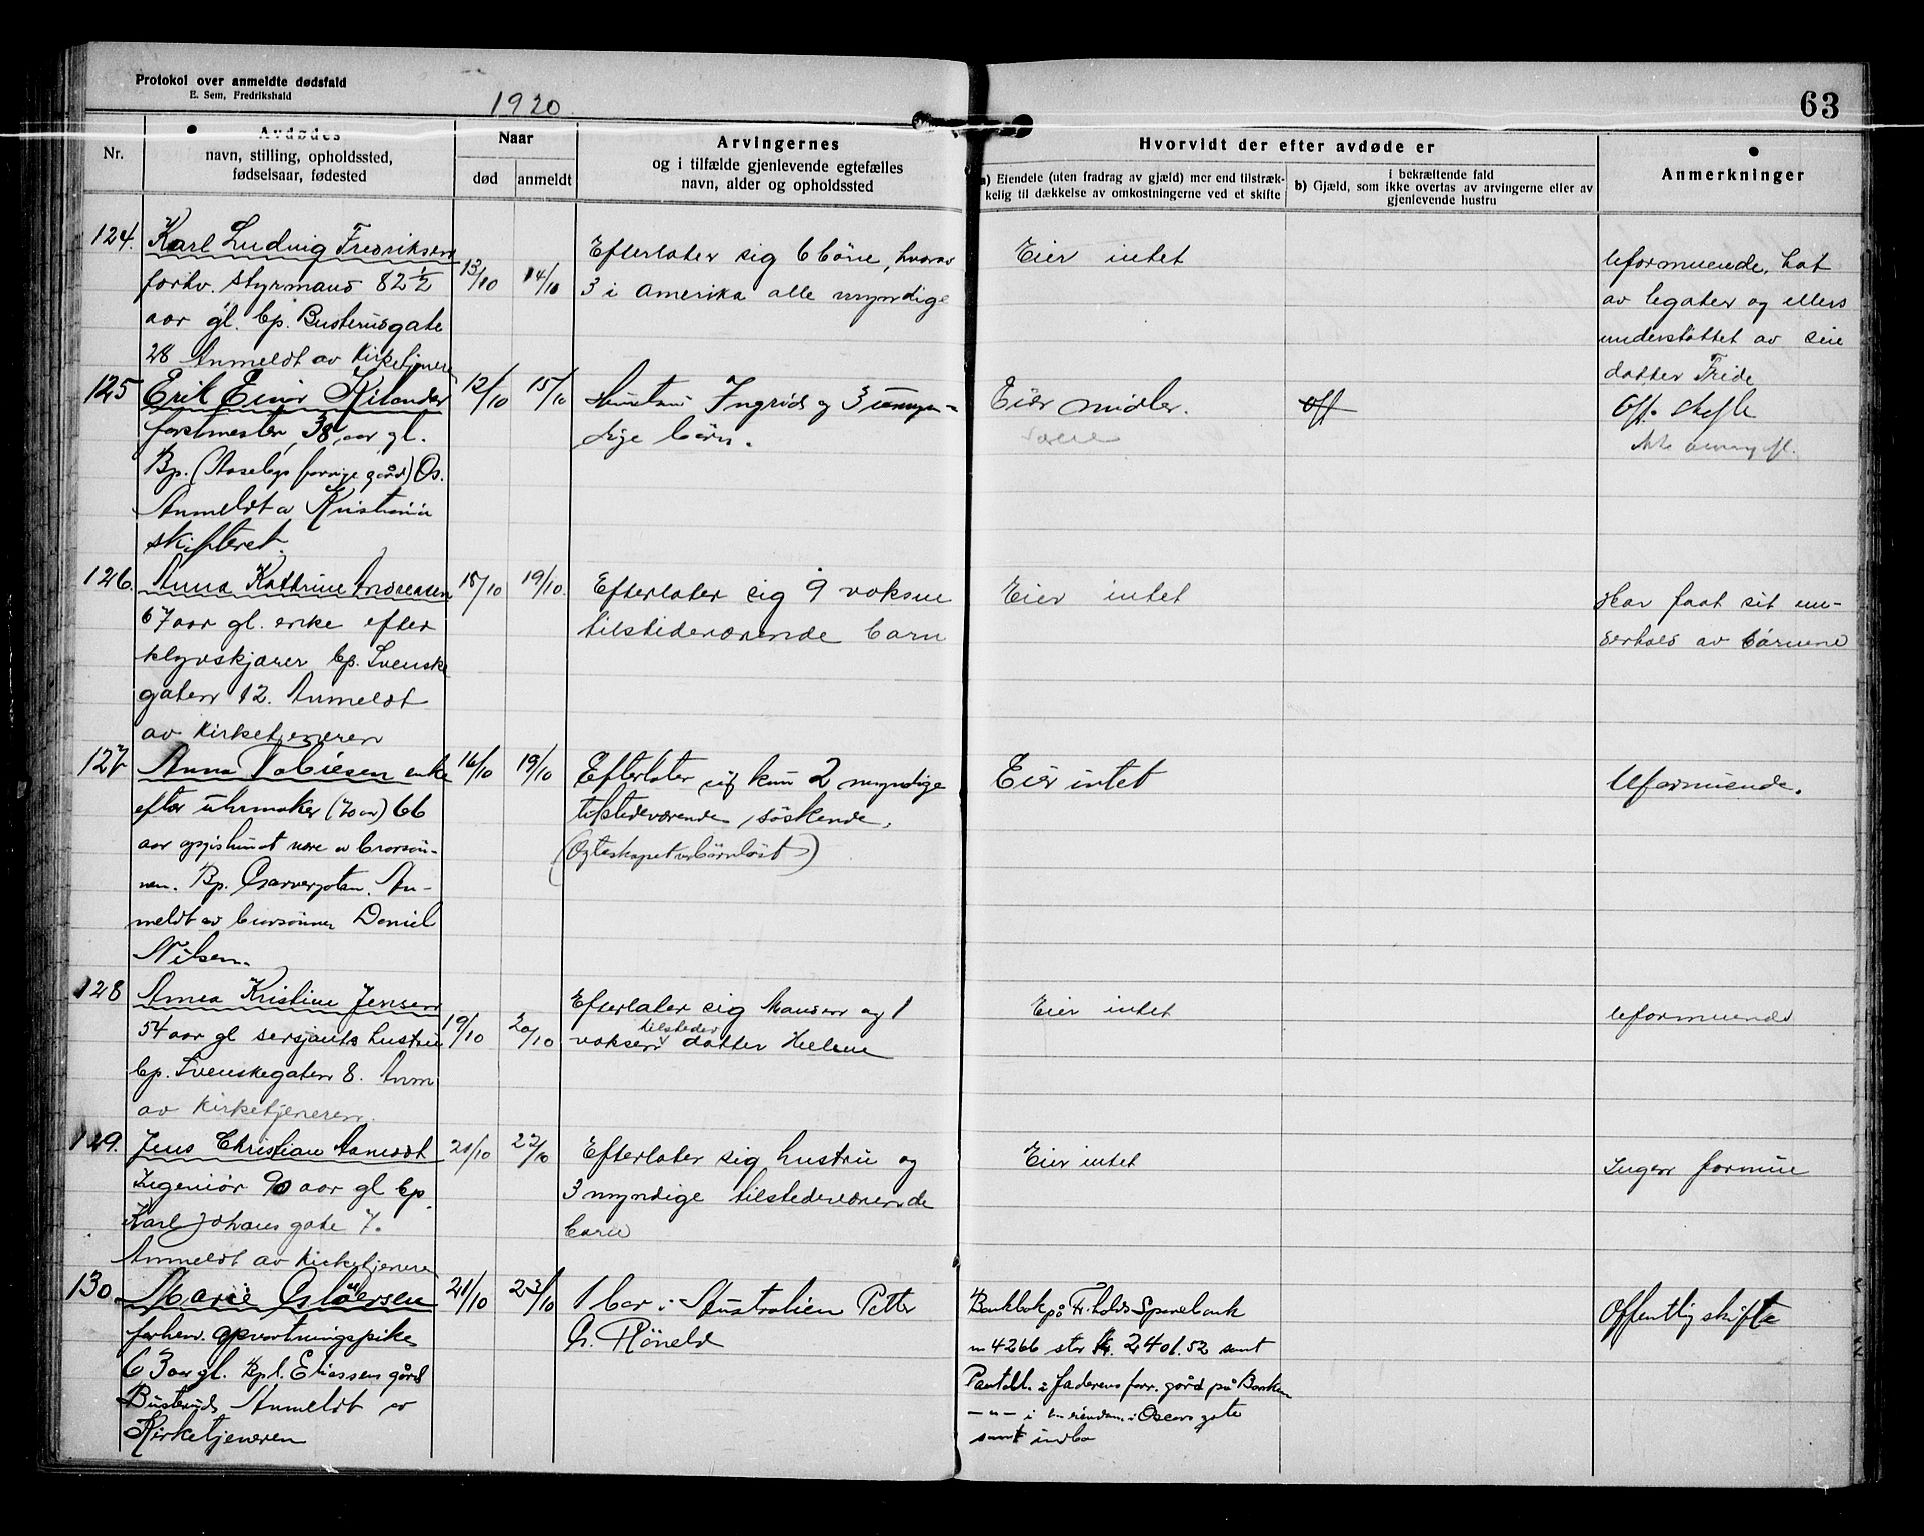 Protokol over anmeldte dødsfald
E. Sem, Fredrikshald
1920
63
Nr.
Avdødes
navn, stilling, opholdssted,
fødselsaar, fødested
Naar
død
anmeldt
Arvingernes
og i tilfælde gjenlevende egtefælles
navn, alder og opholdssted
Hvorvidt der efter avdøde er
a) Eiendele (uten fradrag av gjæld) mer end tilstræk-
kelig til dækkelse av omkostningerne ved et skifte
i bekræftende fald
b) Gjæld, som ikke overtas av arvingerne eller av
gjenlevende hustru
Anmerkninger
124.
Karl Ludvig Fredriksen
forhv. styrmand 82 ½
aar gl. bp. Busterudgate
28 Anmeldt av Kirketjener
13/10
14/10
Efterlater sig 6 børn, hvorav
3 i Amerika alle myndige
Eier intet
Uformuende, hat
av legater og ellers
understøttet av sin
datter Fride
125
Erik Einar Kilander
forstmester, 38 aar gl.
Bp. (Aasebys forrige gård) Os.
Anmeldt a Kristiania
skifteret.
12/10
15/10
Hustru Ingrid og 3 umyn-
dige børn.
Eier midler.
Off
Off. skifte
126.
Anna Kathrine Andreasen
67 aar gl. enke efter
klyvskjærer bp. Svenske
gaten 12. Anmeldt
av Kirketjeneren
15/10
19/10.
Efterlater sig 9 voksne
tilstedeværende barn
Eier intet
Har faat sit un-
derhold av børnene
127
Anna Tobiesen enke
efter uhrmaker (70 år) 66
aar
nen. Bp. Garvergaten. An-
meldt av brorsønnen Daniel
Nilsen.
16/10
19/10
Efterlater sig kun 2 myndige
tilstedeværende søskende.
(Ægteskapet var børnløst)
Eier intet
Uformuende.
128
Anna Kristine Jensen
54 aar gl sersjants hustru
bp. Svenskegaten 8. Anm
av Kirketjeneren.
19/10
20/10
Efterlater sig Manden og 1
tilstedev
voksen datter Helene
Eier intet
Uformuende
129.
Jens Christian Aamodt
Ingeniør 90 aar gl bp.
Karl Johans gate 7.
Anmeldt av Kirketjener
20/10
22/10
Efterlater sig hustru og
3 myndige tilstedeværende
barn
Eier intet
Ingen formue
130
Marie
forhenv. opvartningspike
63 aar gl. Bpl. Eliassens gård
Busterud. Anmeldt av
Kirketjeneren
21/10
23/10
1 bror i Australien Petter
G.
Bankbok på Fr.halds Sparebank
n 4266 stor Kr. 2401.52 samt
Pantobl. i faderens forr. gård på Banken
— „ — i en eiendom i Oscars gate
samt indbo
Offentlig skifte